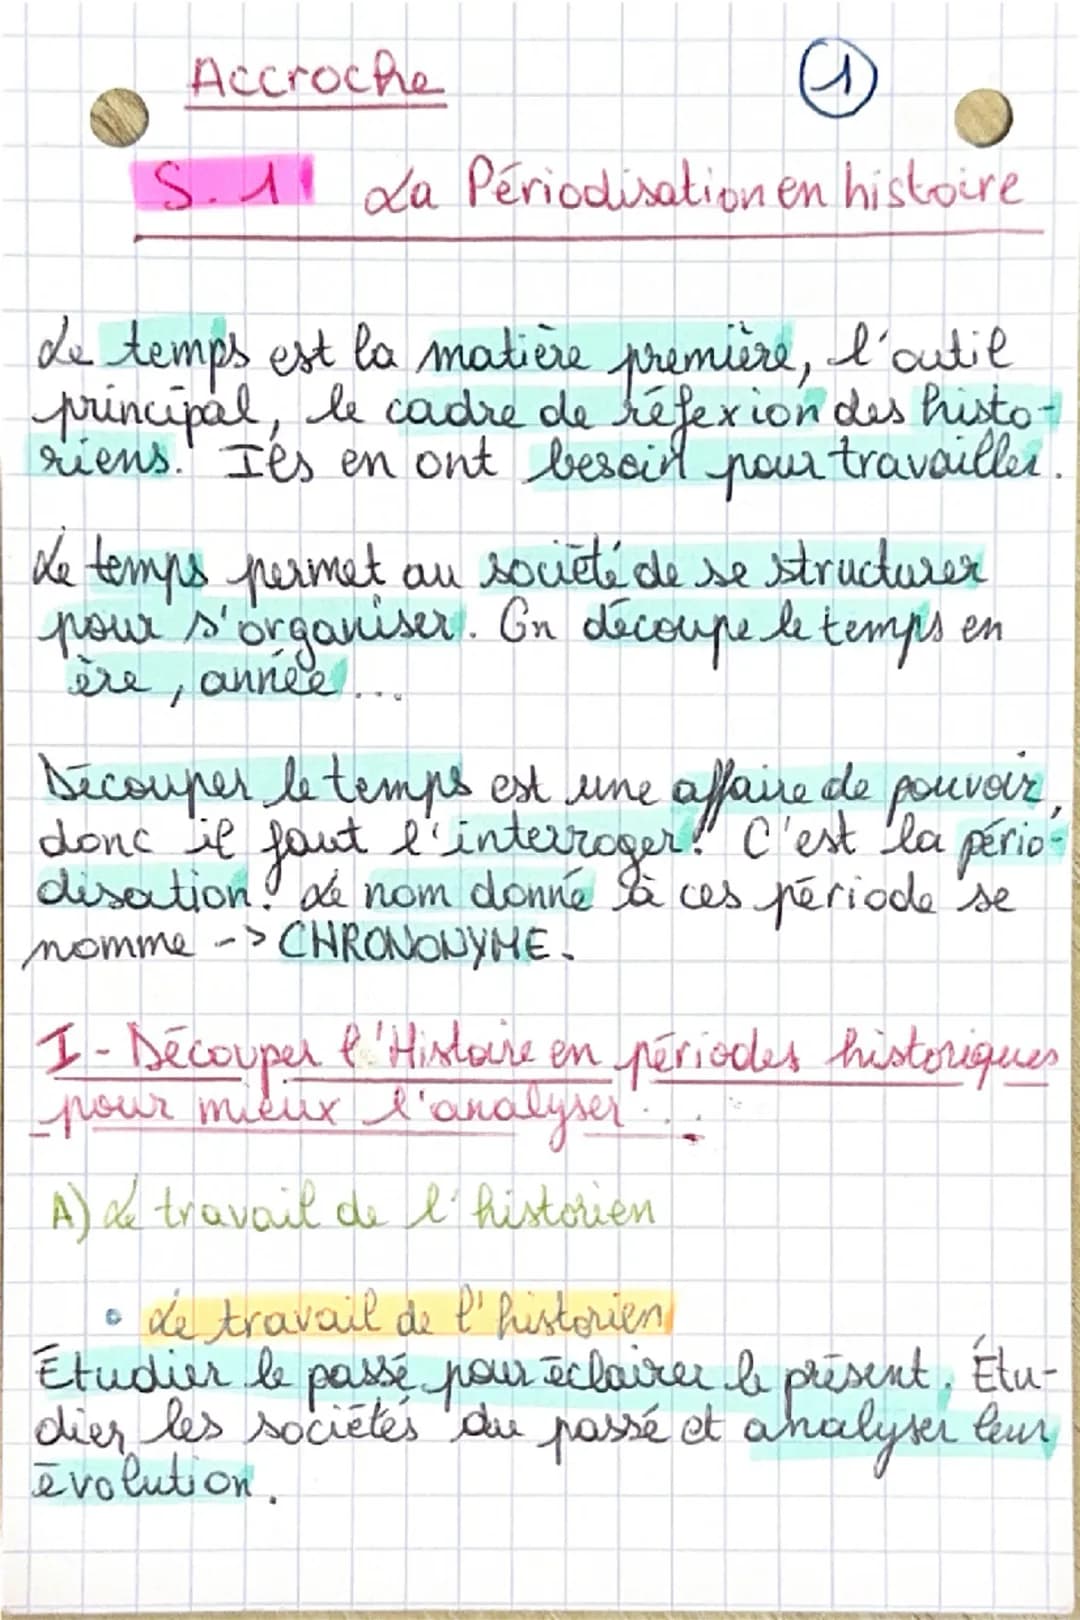 Accroche
1
S. 1 La Périodisation en histoire
Le temps est la matière première, l'outil
principal, le cadre de réfexion des histo-
riens. Ils en ont besoin pour travailler.
Le temps permet au société de se structurer
pour s'organiser. On découpe le temps en
ère, année...
Découper le temps est une affaire de pouvoir,
donc il faut l'interroger! C'est la pério-
disation! Le nom donné à ces période se
nomme -> CHRONONYME.
I - Découper l'Histoire en périodes historiques
pour mieux l'analyser...
A) Le travail de l'historien
• Le travail de l'historien
Étudier le passé pour éclairer le présent. Étu-
dier les sociétés du passé et analyser leur
évolution.